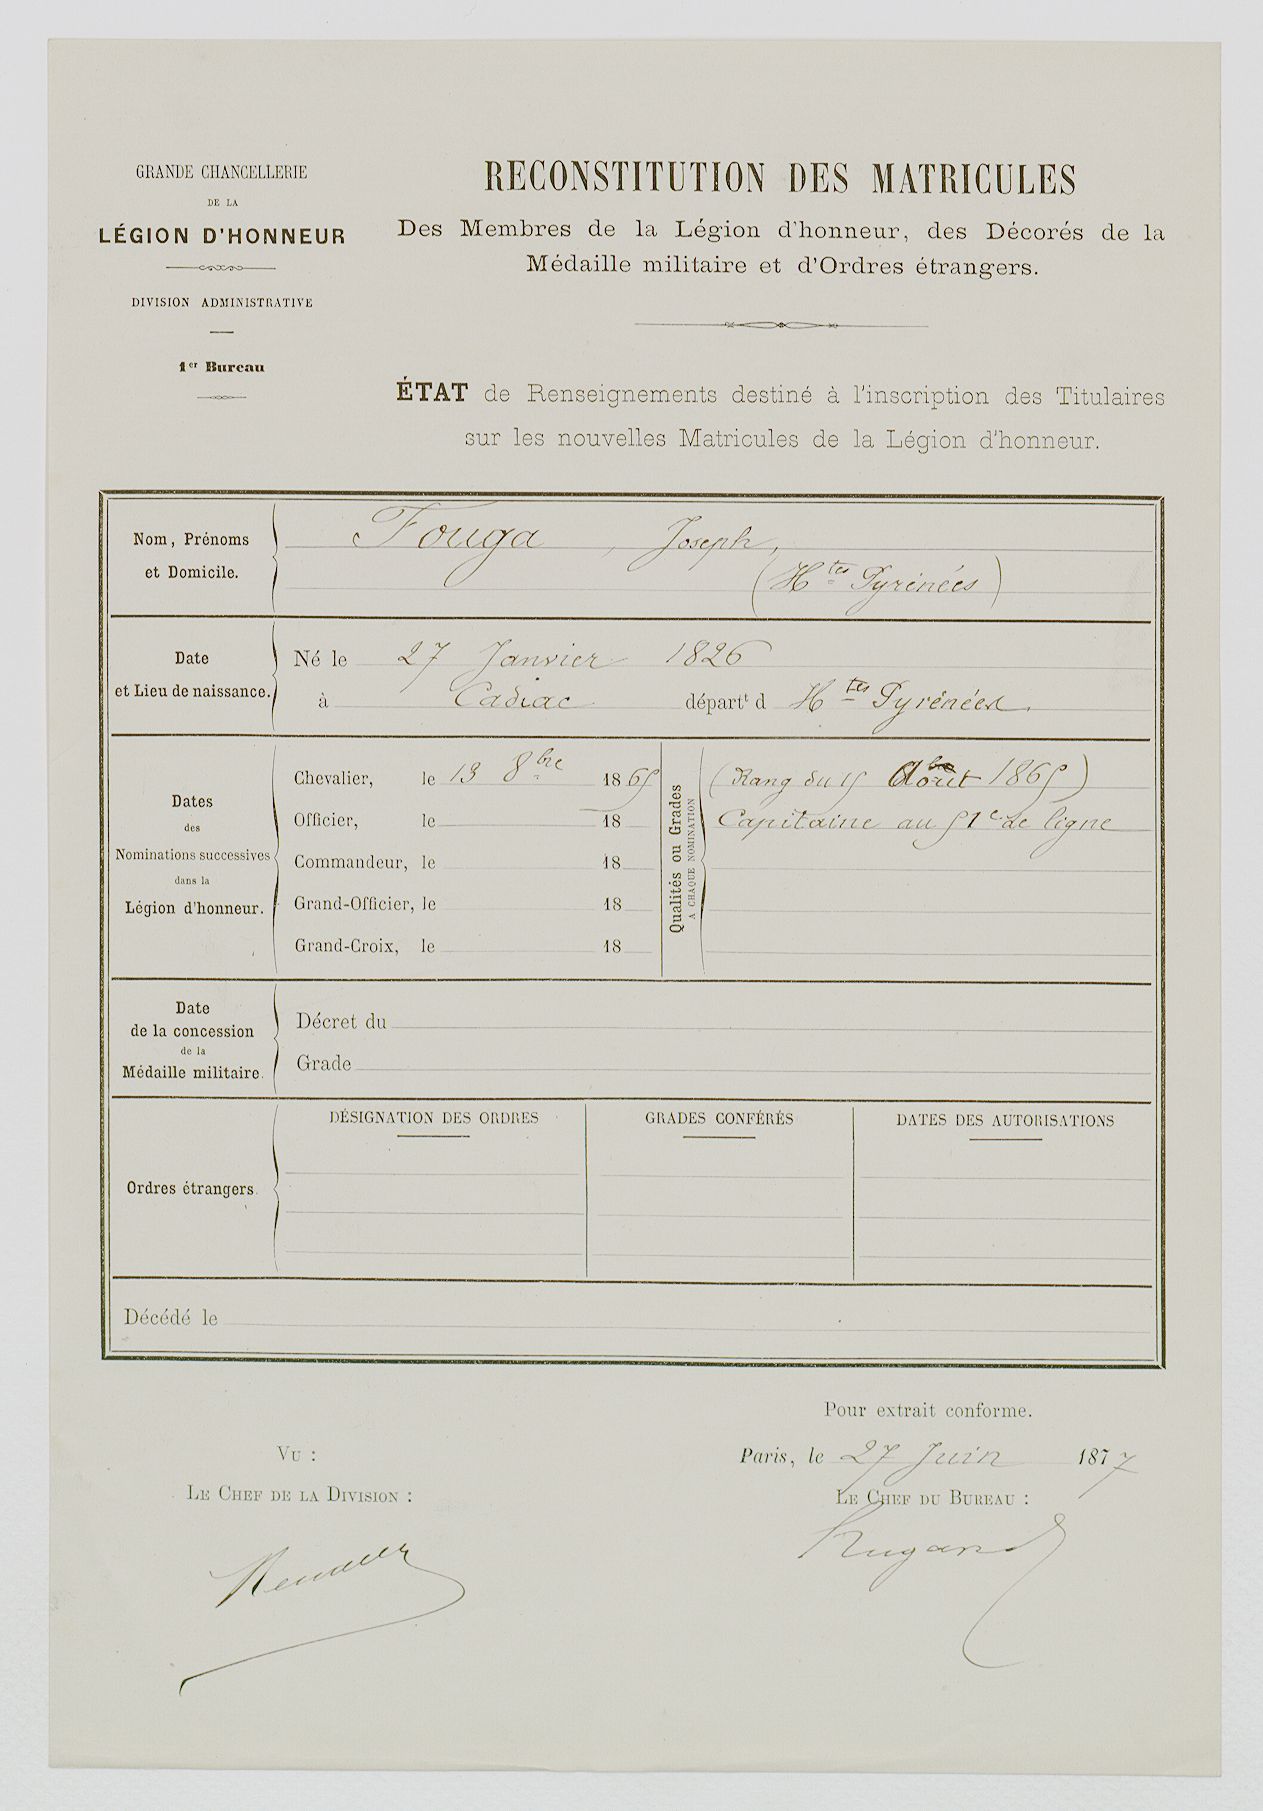 GRANDE CHANCELLERIE
DE LA
LÉGION D'HONNEUR
DIVISION ADMINISTRATIVE
1er Bureau
RECONSTITUTION DES MATRICULES
Des Membres de la Légion d'honneur, des Décorés de la
Médaille militaire et d'Ordres étrangers.
ÉTAT de Renseignements destiné à l'inscription des Titulaires
sur les nouvelles Matricules de la Légion d'honneur.
Nom, Prénoms
et Domicile.
Fouga, Joseph,
(Htes Pyrénées)
Date
et Lieu de naissance.
Né le 27 Janvier 1826
à Cadiac départt d Htes Pyrénées.
Dates
des
Nominations successives
dans la
Légion d'honneur.
Chevalier, le 13 8bre 1865
Officier, le 18
Commandeur, le 18
Grand-Officier, le 18
Grand-Croix, le 18
Qualités ou Grades
A CHAQUE NOMINATION
(Rang du 15 Août 1865)
Capitaine au 51e de ligne
Date
de la concession
de la
Médaille militaire.
Décret du
Grade
Ordres étrangers.
DÉSIGNATION DES ORDRES
GRADES CONFÉRÉS
DATES DES AUTORISATIONS
Décédé le
Pour extrait conforme.
Paris, le 27 Juin 1877
VU :
LE CHEF DE LA DIVISION :
LE CHEF DU BUREAU :